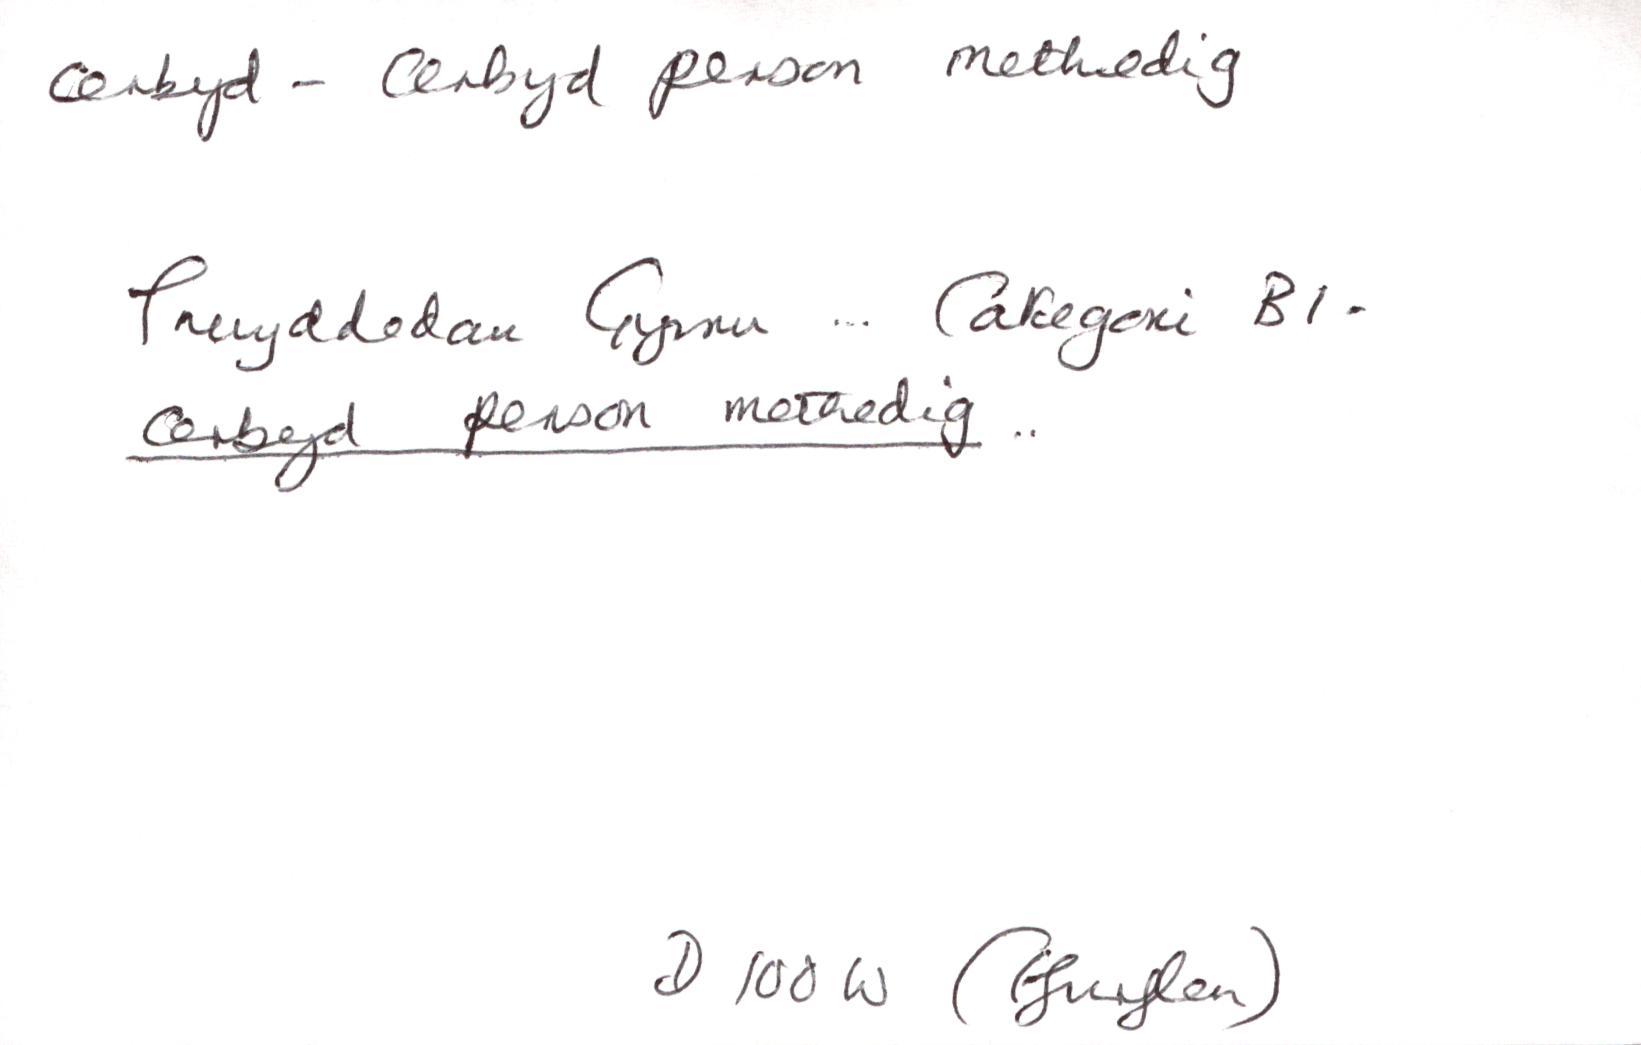 cerbyd - Cerbyd person methedig
Trwyddedau Gyrru ... Categori B1 -
cerbyd person methedig ..
D 100 W (Ffurflen)